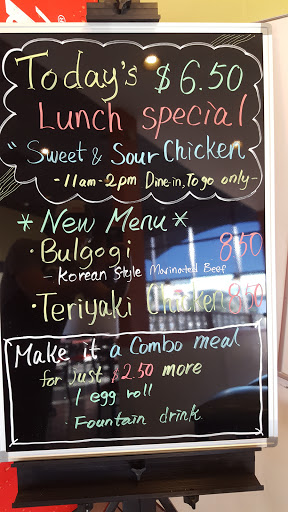 Today's $6.50
Lunch special
"Sweet & Sour Chicken
- 11am - 2pm Dine-in, To go only -
* New Menu *
· Bulgogi 8.50
- Korean Style Marinated Beef
· Teriyaki Chicken 8.50
Make it a Combo meal
for just $2.50 more
· 1 egg roll
· Fountain drink